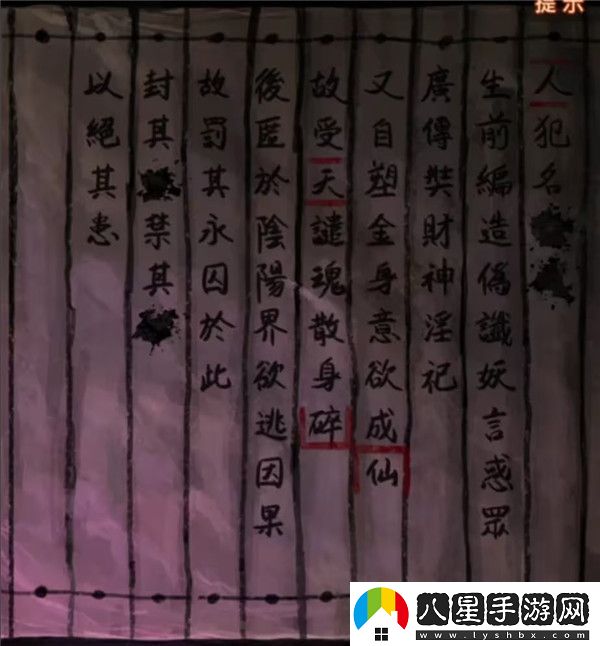 提示
人犯名
生前編造偽讖妖言惑眾
廣傳奘財神淫祀
又自塑金身意欲成仙
故受天譴魂散身碎
後匿於陰陽界欲逃因果
故罰其永囚於此
封其 禁其
以絕其患
八星手游网
www.lyshbx.com